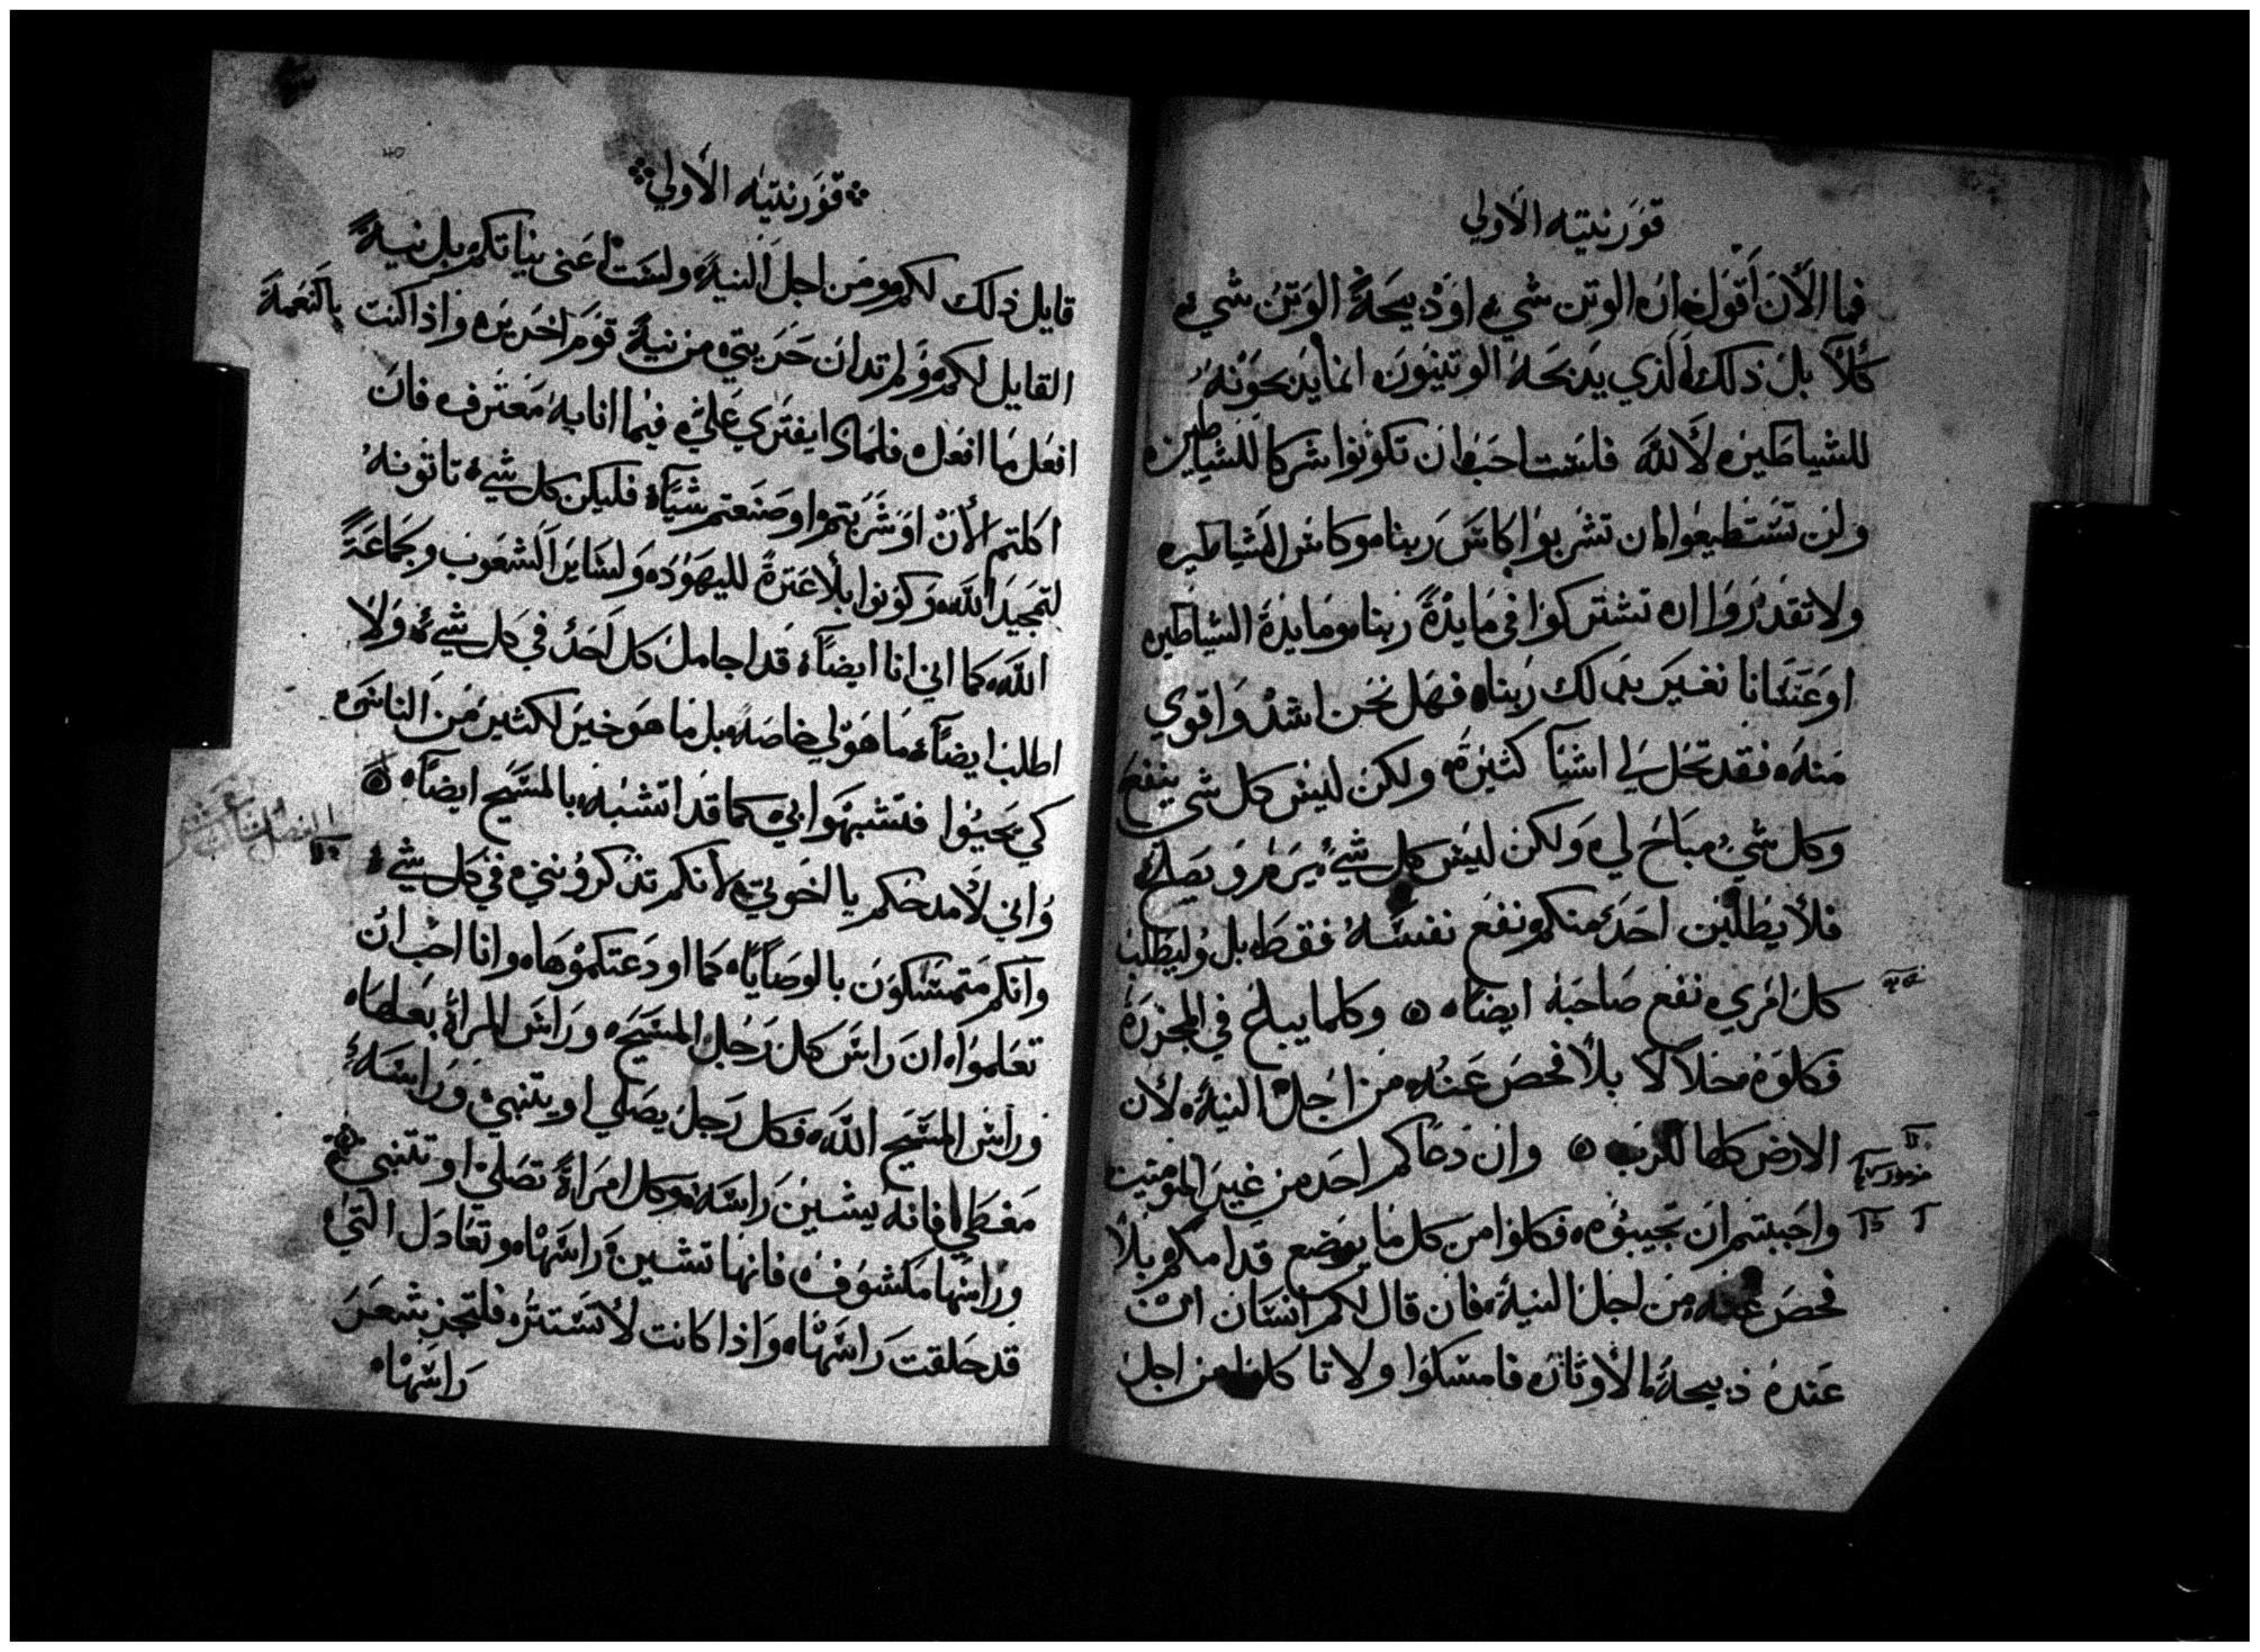 قورنتيه الاولي
فما الآن اقول ان الوتن شيء او دبيحة الوتن شيء
كلا بل ذلك الذي يدبحه الوتنيون انما يدبحونه
للشياطين لا لله فلست احب ان تكونوا شركا للشياطين
ولن تستطيعوا ان تشربوا كاس ربنا وكاس الشياطين
ولا تقدروا ان تشتركوا في مايدة ربنا ومايدة الشياطين
او عسانا نغير بدلك ربنا فهل نحن اشد واقوي
منه فقد تحل لي اشيآ كثيرة ولكن ليس كل شي ينفع
وكل شي مباح لي ولكن ليس كل شيء يرم ويصلح
فلا يطلبن احد منكم نفع نفسه فقط بل وليطلب
كل امري نفع صاحبه ايضاً وكلما يباع في المجزرة
فكلوه محلالا بلا فحص عنه من اجل النية لان
الارض كلها للرب وان دعاكم احد من غير المومنين
واحببتم ان تجيبوه فكلوا من كل ما يوضع قدامكم بلا
فحص عنه من اجل النية فان قال لكم انسان ان
عنده ذبيحة الاوثان فامسكوا ولا تاكلوا من اجل
قورنتيه الأولي
قايل ذلك لكم ومن اجل النية ولست اعني بنياتكم بل نية
القايل لكم ولم تدان حريتي من نية قوم اخرين واذا كنت بالنعمة
افعل ما افعل فلماذا يفترى علي فيما انا به معترف فان
اكلتم الأن او شربتم او صنعتم شيآ فليكن كل شيء تاتونه
لتمجيد الله وكونوا بلا عترة لليهود ولساير الشعوب وجماعة
الله كما اني انا ايضاً قد اجامل كل احد في كل شيء ولا
اطلب ايضاً ما هو لي خاصة بل ما هو خير لكثير من الناس
كي يحيوا فتشبهوا بي كما قد اتشبه بالمسيح ايضاً
الفصل الثالث عشر
واني لأمدحكم يا اخوتي لأنكم تذكروني في كل شيء
وانكم متمسكون بالوصايا كما اودعتكموها وانا احب ان
تعلموا ان راس كل رجل المسيح وراس المرأة بعلها
وراس المسيح الله فكل رجل يصلي او يتنبي وراسه
مغطي فانه يشين راسه وكل امراة تصلي او تتنبي
وراسها مكشوف فانها تشين راسها وتعادل التي
قد حلقت راسها واذا كانت لا تستتر فلتجز بشعر
راسها